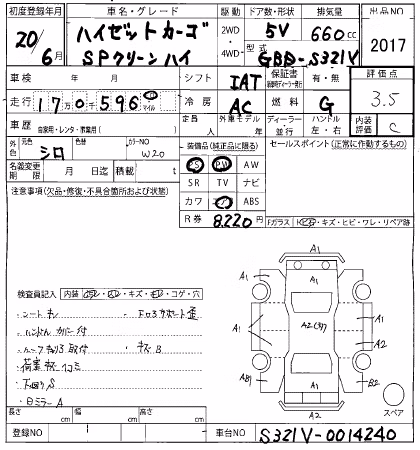 初度登録年月
車名・グレード
駆動
ドア数・形状
排気量
出品NO
20/6月
ハイゼットカーゴ
SPクリーン ハイ
2WD
4WD
5V
660cc
型式
GBD-S321V
2017
車検 年 月
シフト
IAT
保証書
有・無
評価点
3.5
走行
17万0千596
マイル
冷房
AC
燃料
G
車歴
自家用・レンタ・営業用( )
定員
人
外車モデル
年
ディーラー
並行
ハンドル
左・右
内装
評価
C
外色
元色
シロ
色替
カラーNO
W20
装備品(純正品に限る)
セールスポイント(正常に作動するもの)
名義変更
期限
月 日迄
積載 t
PS PW AW
SR TV ナビ
カワ エアB ABS
注意事項(欠品・修復・不具合箇所および状態)
R券 8,220円
Fガラス
キズ・ヒビ・ワレ・リペア跡
検査員記入
内装
キズ
コゲ・穴
シートキレ
ハンドルカバー付
キズB
荷室 キズ凹ミ
下廻りS
ミラーA
A1
A1
A1
A1
A2
A1
A1
A2
AB1
B2
A1
A2
スペア
長さ cm
幅 cm
高さ cm
登録NO
車台NO
S321V-0014240